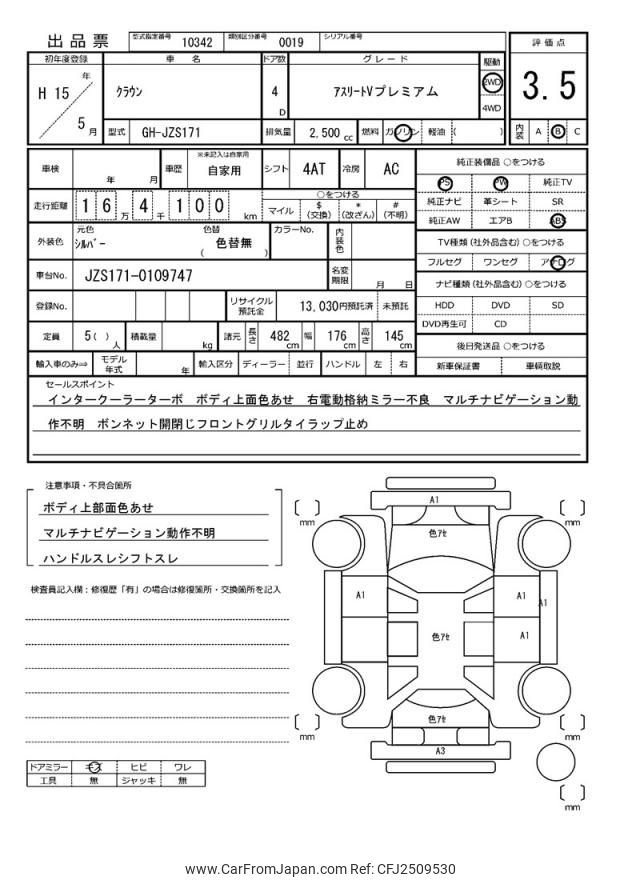 出品票 型式指定番号 10342 類別区分番号 0019 シリアル番号
評価点
3.5
内装 A B C
初年度登録 車名 ドア数 グレード 駆動
H 15 年 5 月
クラウン 4 D アスリートVプレミアム 2WD 4WD
型式 GH-JZS171 排気量 2,500 cc 燃料 ガソリン 軽油 ( )
車検 年 月 車歴 ※未記入は自家用 自家用 シフト 4AT 冷房 AC
走行距離 1 6 万 4 千 1 0 0 km
○をつける
マイル $ (交換) * (改ざん) # (不明)
外装色 元色 シルバー 色替 ( 色替無 ) カラーNo. 内装色
車台No. JZS171-0109747 名変期限 月 日
登録No. リサイクル預託金 13,030円預託済 未預託
定員 5( ) 人 積載量 kg 諸元 長さ 482 cm 幅 176 cm 高さ 145 cm
輸入車のみ⇒ モデル年式 年 輸入区分 ディーラー 並行 ハンドル 左 右
純正装備品 ○をつける
PS PW 純正TV
純正ナビ 革シート SR
純正AW エアB ABS
TV種類 (社外品含む) ○をつける
フルセグ ワンセグ アナログ
ナビ種類 (社外品含む) ○をつける
HDD DVD SD
DVD再生可 CD
後日発送品 ○をつける
新車保証書 車輌取説
セールスポイント
インタークーラーターボ ボディ上面色あせ 右電動格納ミラー不良 マルチナビゲーション動
作不明 ボンネット開閉じフロントグリルタイラップ止め
注意事項・不具合箇所
ボディ上部面色あせ
マルチナビゲーション動作不明
ハンドルスレシフトスレ
検査員記入欄：修復歴「有」の場合は修復箇所・交換箇所を記入
ドアミラー キズ ヒビ ワレ
工具 無 ジャッキ 無
A1
mm
mm
色アセ
A1
A1
A1
色アセ
A1
色アセ
mm
mm
A3
mm
www.CarFromJapan.com Ref: CFJ2509530